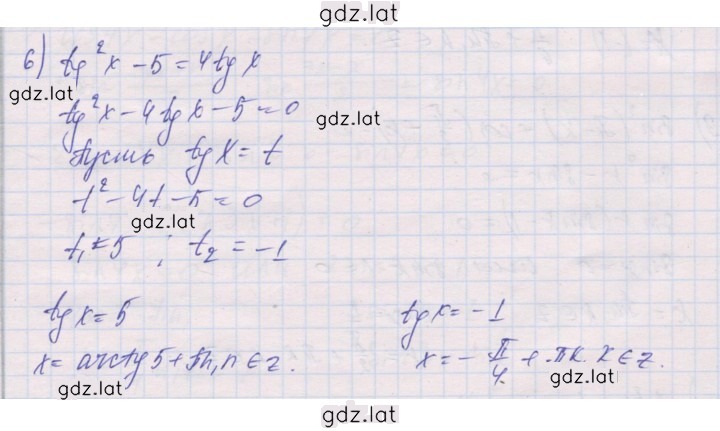 gdz.lat
6) tg²x - 5 = 4tg x
gdz.lat
tg²x - 4tg x - 5 = 0
gdz.lat
Пусть tg x = t
t² - 4t - 5 = 0
gdz.lat
t₁ = 5 ; t₂ = -1
tg x = 5 tg x = -1
x = arctg 5 + πn, n ∈ z. x = - π/4 + πk. k ∈ z.
gdz.lat gdz.lat
gdz.lat